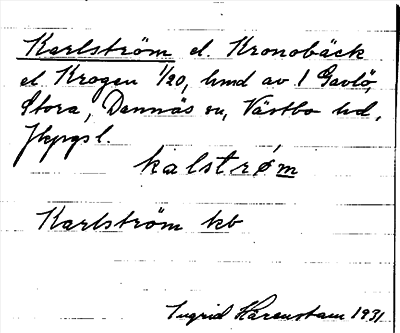 Karlström el. Kronobäck
el. Krogen 1/20, hmd av 1 Gavlö,
Stora, Dannäs sn, Västbo hd,
Jkpgs l.
kalstrøm
Karlström kb
Ingrid Härenstam 1931